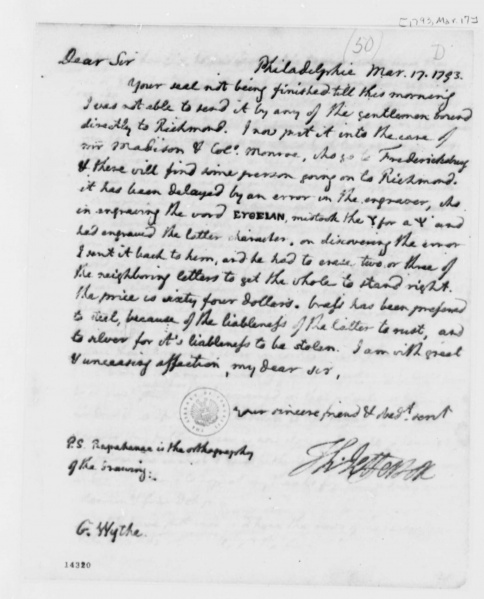 [1793, Mar. 17]
(50) D
Dear Sir
Philadelphia Mar. 17. 1793.
Your seal not being finished till this morning
I was not able to send it by any of the gentlemen bound
directly to Richmond. I now put it into the care of
mr Madison & Colo. Monroe, who go to Fredericksburg
& there will find some person going on to Richmond.
it has been delayed by an error in the engraver, who
in engraving the word mistook the Υ for a Ψ and
had engraved the latter character. on discovering the error
I sent it back to him, and he had to erase two or three of
the neighboring letters to get the whole to stand right.
the price is sixty four dollars. brass has been preferred
to steel, because of the liableness of the latter to rust, and
to silver for it's liableness to be stolen. I am with great
& unceasing affection, my dear Sir,
your sincere friend & hed. servt
Th: Jefferson
P.S. is the orthography
of the drawing.
G. Wythe
14320